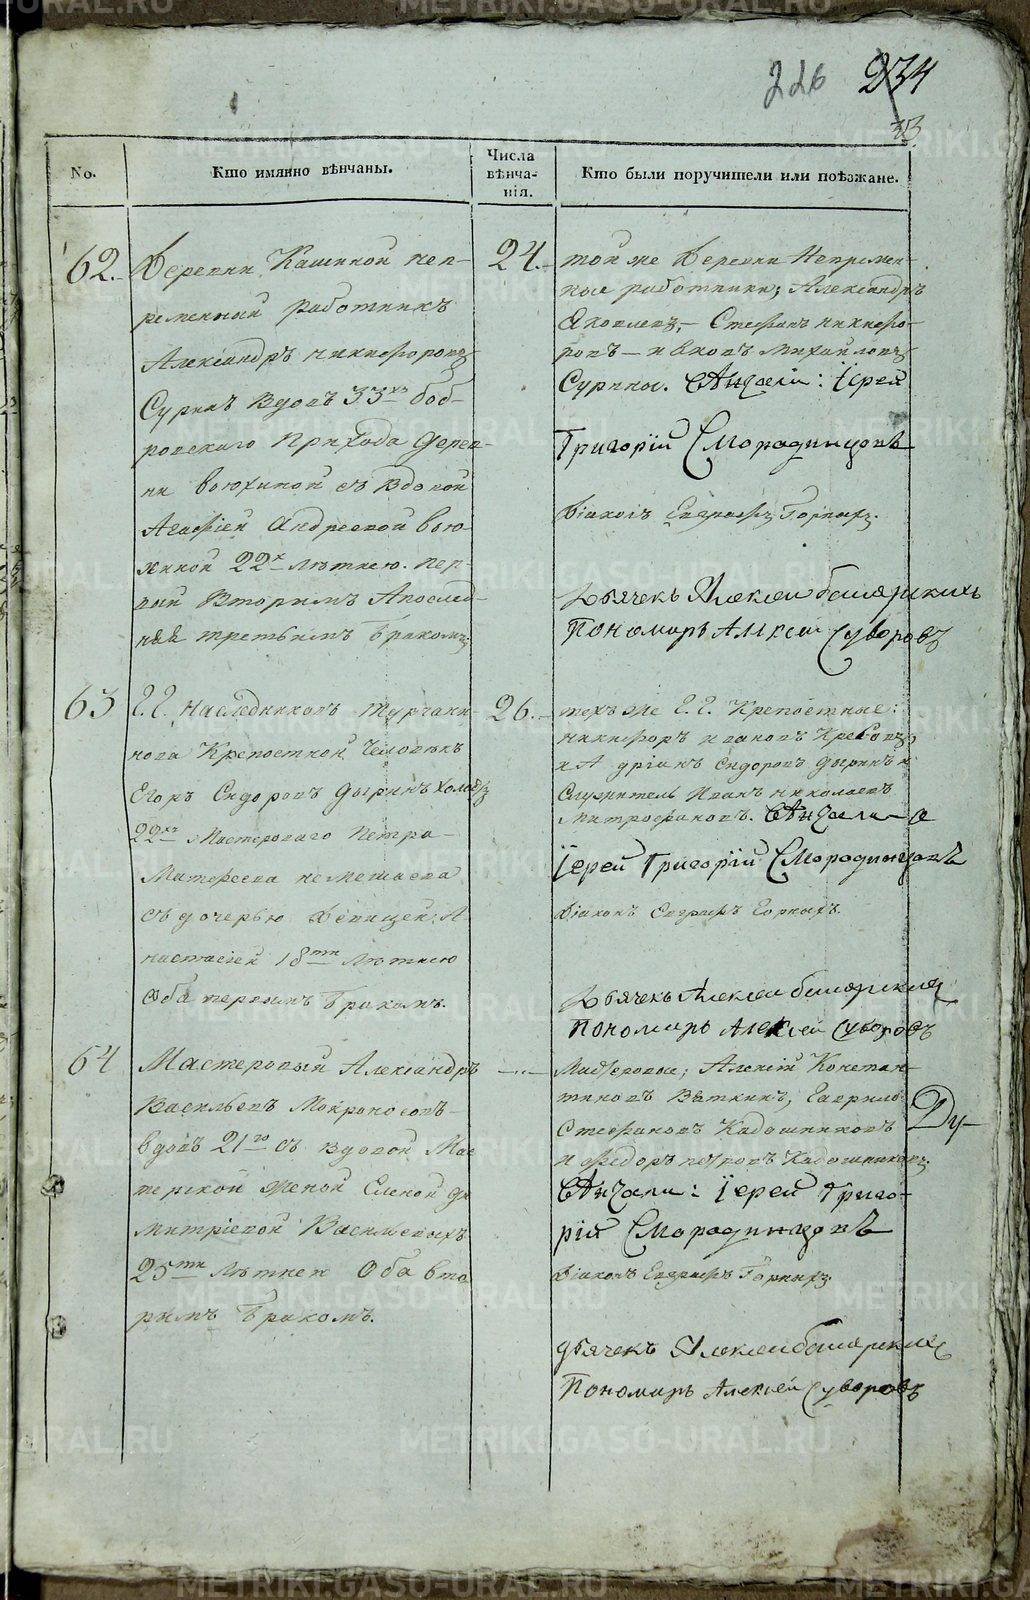 226 234
33
No.
Кто имянно вѣнчаны.
Числа
вѣнча-
нія.
Кто были поручители или поѣзжане.
62.
Деревни Кашиной неп-
ременный работникъ
Александръ Никифоровъ
Суринъ вдовъ 33хъ боб-
ровскаго Прихода дерев-
ни Вьюхиной съ вдовой
Агафіей Андреевой Вью-
хиной 22х лѣтнею. пер-
вый вторымъ а послед-
няя третьимъ бракомъ
24.
той же деревни Непремен-
ные работники; Александръ
Яковлевъ, Стефанъ Никифо-
ровъ и Яковъ Михайловъ
Сурины. Вѣнчали: Іерей
Григорій Смородинцовъ
Діаконъ Евграфъ Горныхъ.
Дьячекъ Алексей белоярскихъ
Пономарь Алексей Суворовъ
63
Г. Г. Наследниковъ Турчани-
нова Крепостной Человѣкъ
Егоръ Сидоровъ Дыринъ холостъ
22хъ Мастероваго Петра
Матфеева
съ дочерью девицей А
настасіей 18ти лѣтнею
Оба первымъ бракомъ.
26.
техъ же Г. Г. Крепостные:
Никифоръ Ивановъ
и Адріанъ Сидоровъ Дыринъ и
Служитель Иванъ Николаевъ
Митрофановъ. Вѣнчали
Іерей Григорій Смородинцовъ
Діаконъ Евграфъ Горныхъ.
Дьячекъ Алексей белоярскихъ
Пономарь Алексей Суворовъ
64
Мастеровый Александръ
Васильевъ Мокроносовъ
вдовъ 21го съ вдовой Мас
терской женой Еленой Ди
митріевой Васильевыхъ
25ти лѣтней Оба вто
рымъ бракомъ.
Мастеровые; Алексій Констан-
тиновъ Вяткинъ, Гаврило
Стефановъ Кадошниковъ
и Федоръ Петровъ Кадошниковъ
Вѣнчали: Іерей Григо-
рій Смородинцовъ
Діаконъ Евграфъ Горныхъ
дьячекъ Алексей белоярскихъ
Пономарь Алексей Суворовъ
Ду-
METRIKI.GASO-URAL.RU